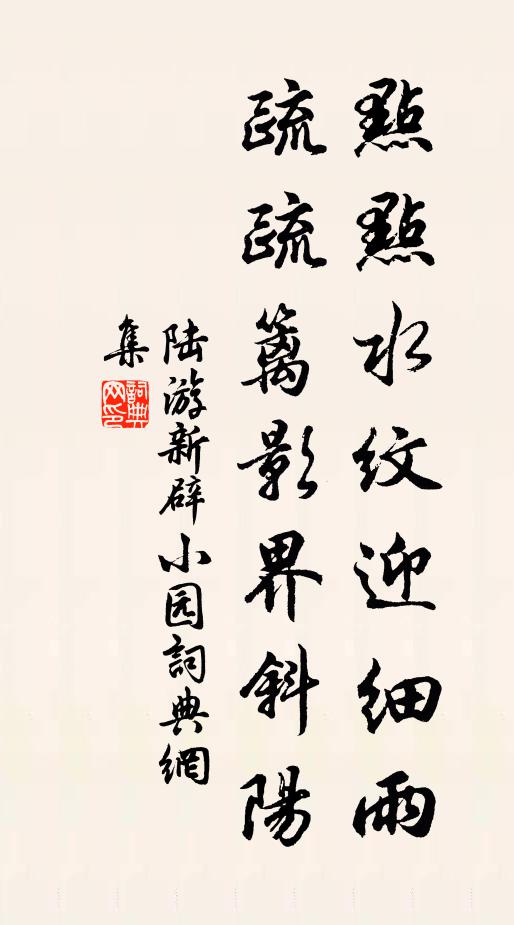 點點水紋迎細雨
疏疏篱影界斜陽
陆游新辟小园詞典網
集
詞典
网印